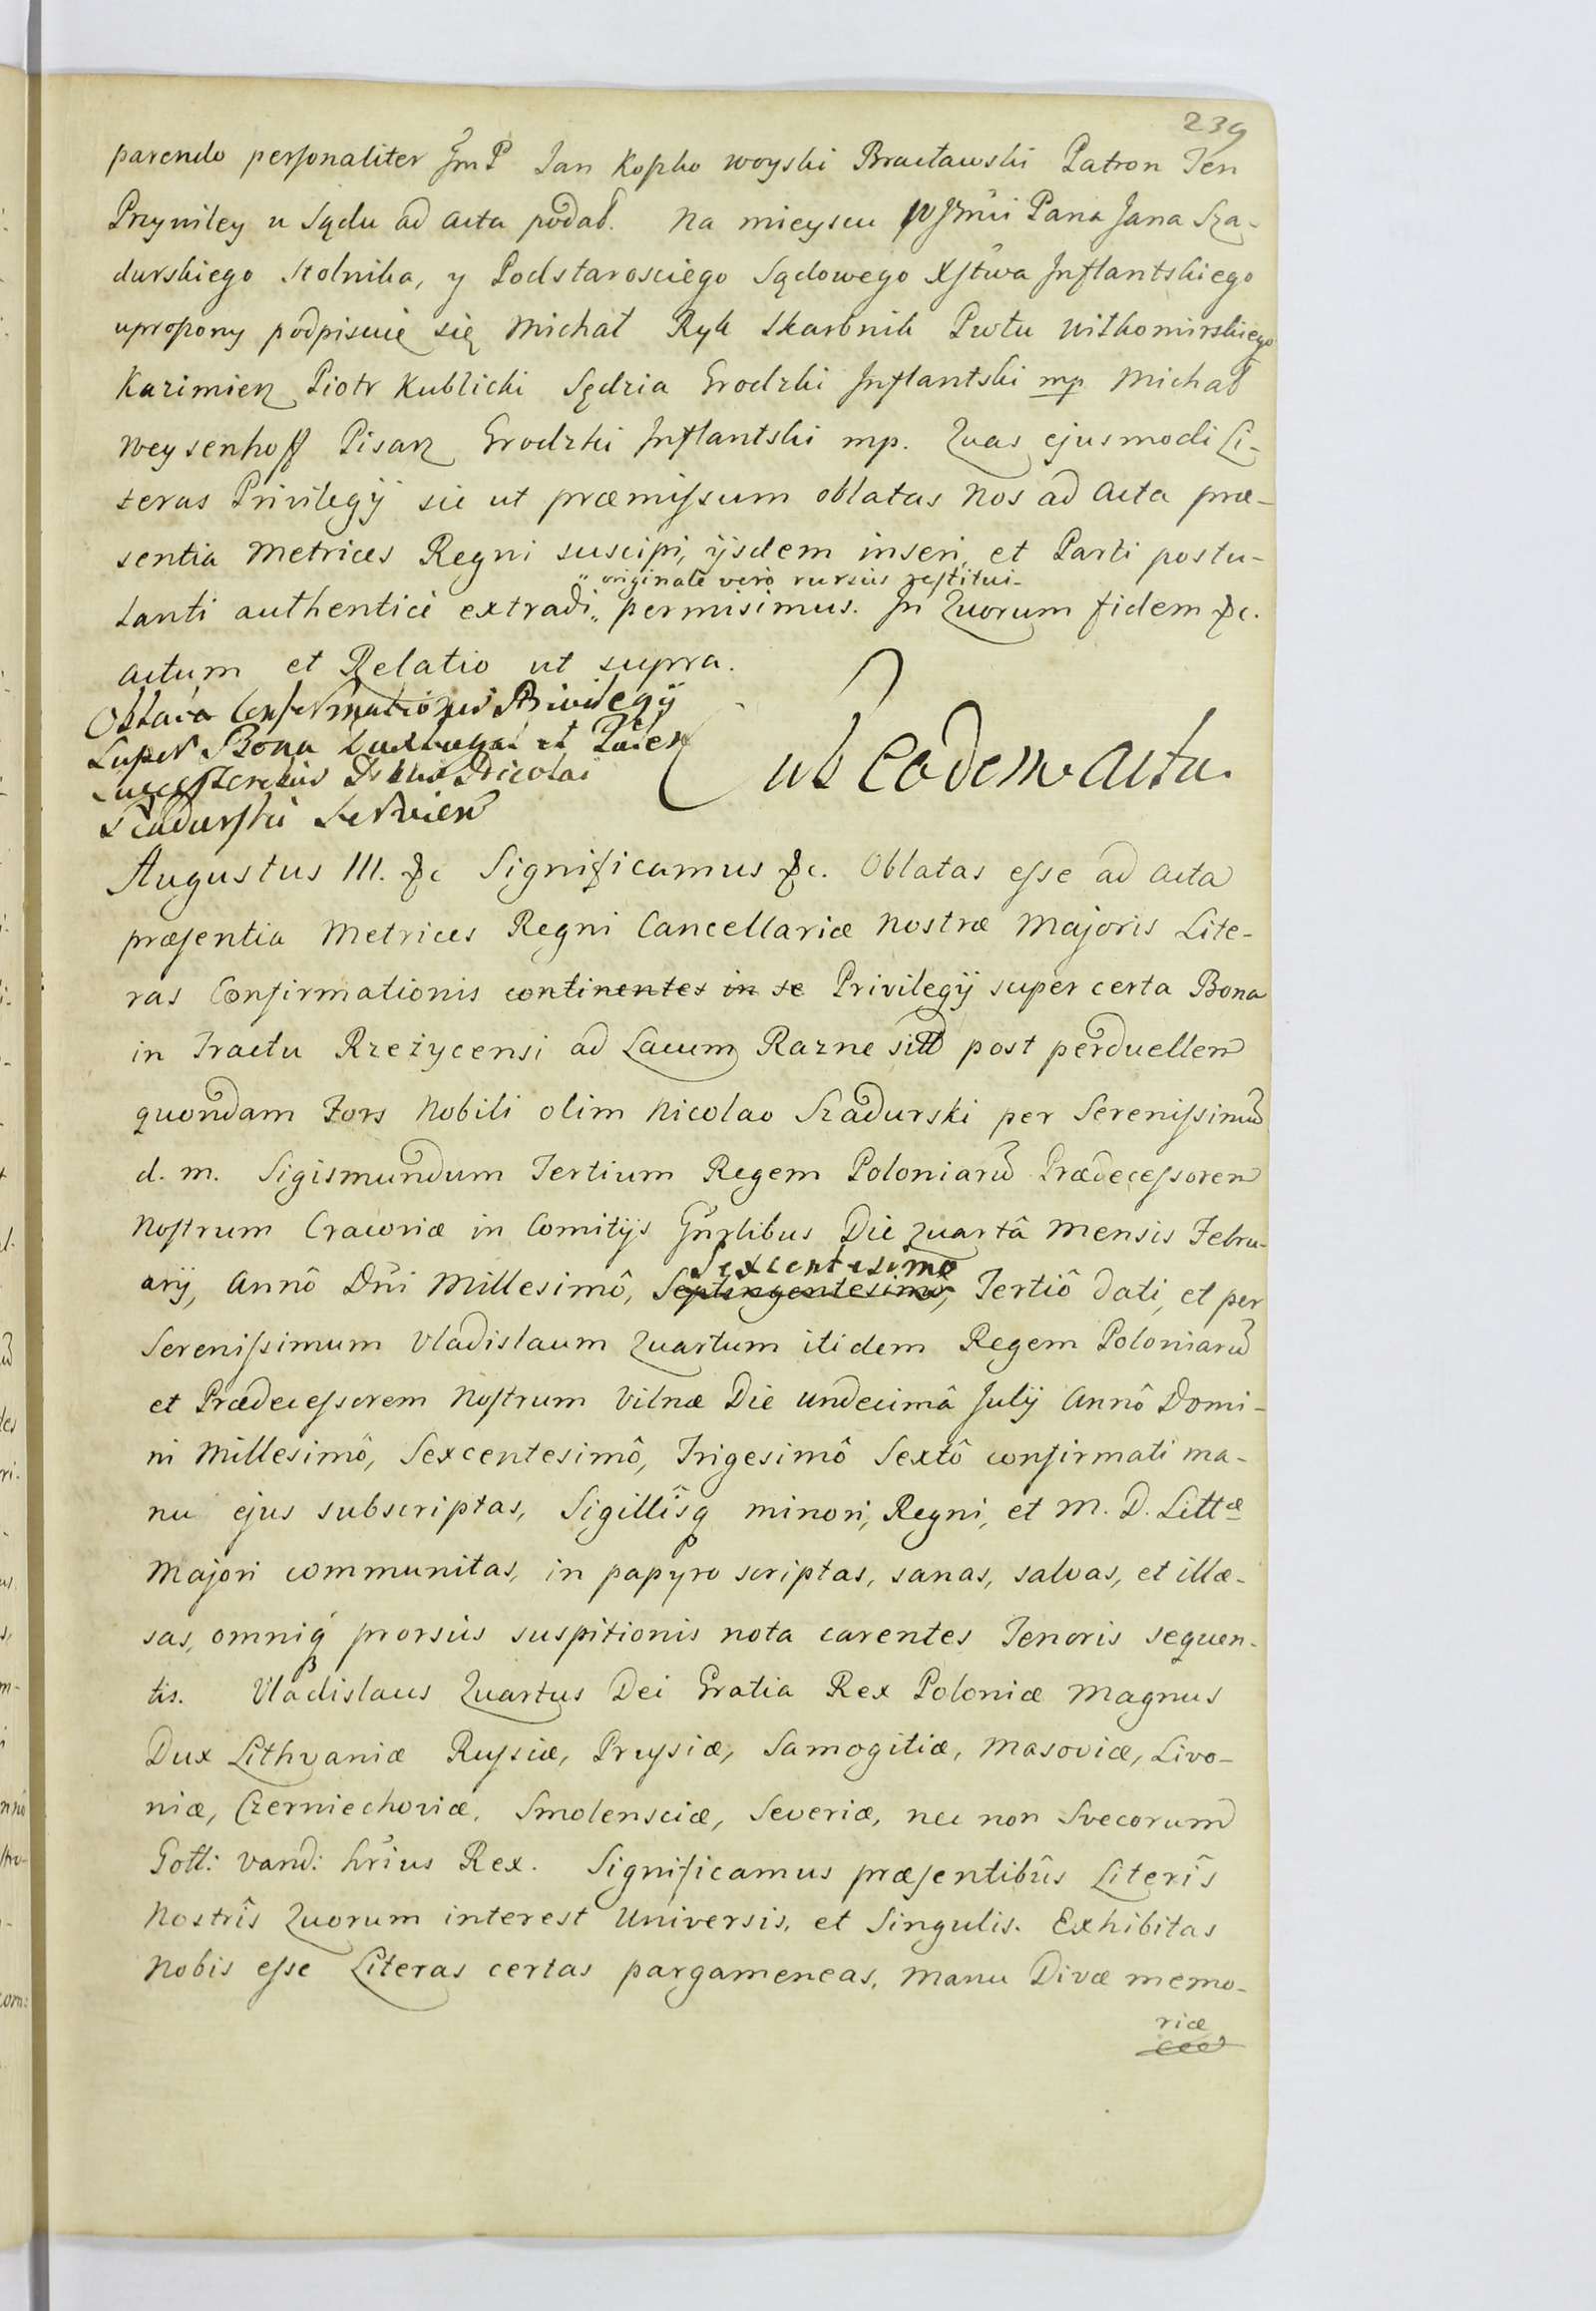 239
parendo personaliter JmP Jan Kopho Woyski Bracławski Patron Ten
Przywiley u Sądu ad acta podał. Na mieyscu WJmci Pana Jana Sza-
durskiego Stolnika, y Podstarosciego Sądowego Xstwa Inflantskiego
uproszony podpisuie się Michał Ryk Skarbnik Pwtu Wiłkomirskiego
Kazimierz Piotr Kublicki Sędzia Grodzki Inflantski mp Michał
Weysenhoff Pisarz Grodzki Inflantski mp. Quas ejusmodi Li-
teras Privilegij sic ut præmissum oblatas Nos ad Acta præ-
sentia Metrices Regni suscipi, ijsdem inseri, et Parti postu-
" originale verò rursùs restitui-
lanti authenticè extradi,, permisimus. In Quorum fidem &c.
actum et Relatio ut supra.
Oblata Confirmationis Privilegij
Super Bona et
Successoribus Nicolai
Szadurski Servien
ut Eadem actu.
Augustus III. &c Significamus &c. Oblatas esse ad acta
præsentia Metrices Regni Cancellariæ Nostræ Majoris Lite-
ras Confirmationis continentes in se Privilegij super certa Bona
in Tractu Rzeżycensi ad Lacum Razne sitt post perduellem
quondam Fors Nobili olim Nicolao Szadurski per Serenissimum
d. m. Sigismundum Tertium Regem Poloniarum Prædecessorem
Nostrum Cracoviæ in Comitijs Gnrlibus Die Quartâ Mensis Febru-
Sexcentesimo
arij, Annô Dni Millesimô, Septingentesimô, Tertiô dati, et per
Serenissimum Vladislaum Quartum itidem Regem Poloniarum
et Prædecessorem Nostrum Vilnæ Die Undecimâ Julij Annô Domi-
ni Millesimô, Sexcentesimô, Trigesimô Sextô confirmati ma-
nu ejus subscriptas, Sigillîsq minori, Regni, et M. D. Littæ
Majori communitas, in papyro scriptas, sanas, salvas, et illæ-
sas, omniq prorsùs suspitionis nota carentes Tenoris sequen-
tis. Vladislaus Quartus Dei Gratia Rex Poloniæ Magnus
Dux Lithvaniæ Russiæ, Prussiæ, Samogitiæ, Masoviæ, Livo-
niæ, Czerniechoviæ, Smolensciæ, Severiæ, nec non Svecorum
Gott: Vand: hrius Rex. Significamus præsentibûs Literîs
Nostrîs Quorum interest Universis, et Singulis. Exhibitas
Nobis esse Literas certas pargameneas, manu Divæ memo-
riæ